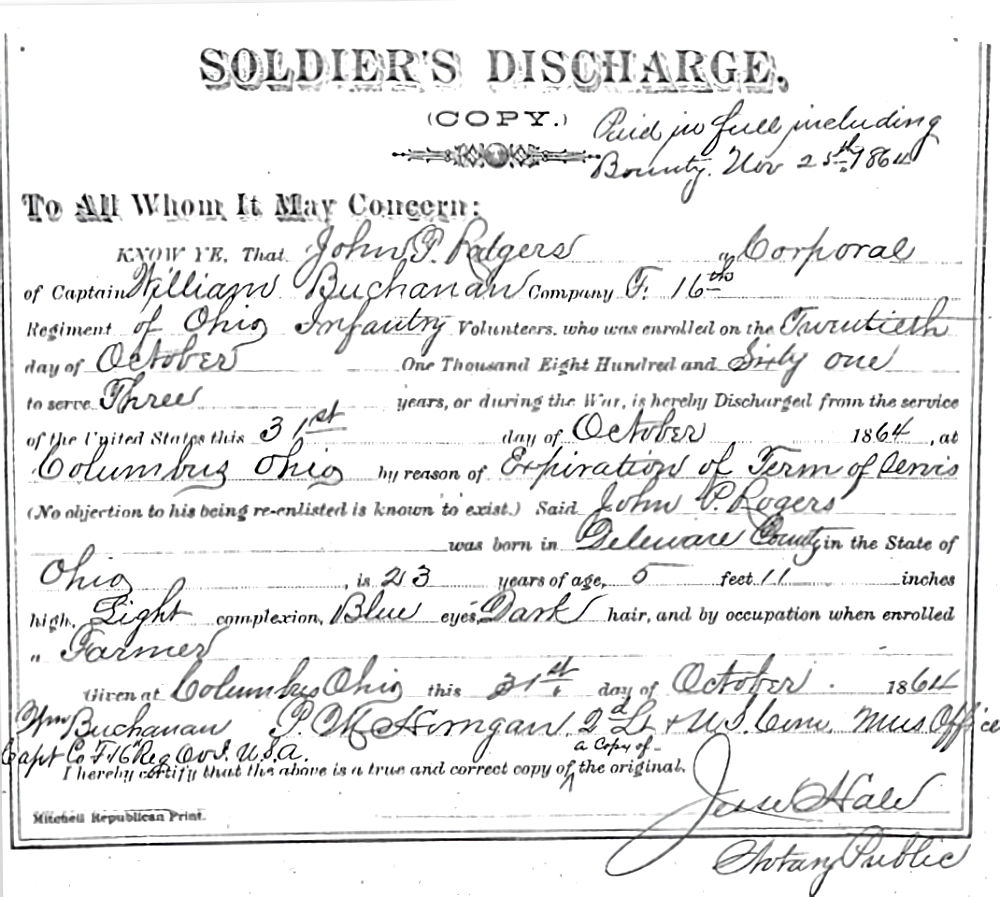 SOLDIER'S DISCHARGE.
(COPY.)
Paid in full including
Bounty. Nov 25th 1864
To All Whom It May Concern:
KNOW YE, That John P. Rodgers a Corporal
of Captain William Buchanan Company F. 16th
Regiment of Ohio Infantry Volunteers, who was enrolled on the Twentieth
day of October One Thousand Eight Hundred and Sixty one
to serve Three years, or during the War, is hereby Discharged from the service
of the United States this 31st day of October 1864, at
Columbus Ohio by reason of Expiration of Term of Servis
(No objection to his being re-enlisted is known to exist.) Said John P. Rogers
was born in Deleware County in the State of
Ohio, is 23 years of age, 5 feet 11 inches
high, Light complexion, Blue eyes, Dark hair, and by occupation when enrolled
" Farmer
Given at Columbus Ohio this 31st day of October 1864
Wm Buchanan P. 2d Lt & U.S. Com. Mus Office
Capt Co F. 16 Reg O.V.I. U.S.A.
a Copy of
I hereby certify that the above is a true and correct copy of ^ the original.
Mitchell Republican Print.
Jesse Hale
Notary Public